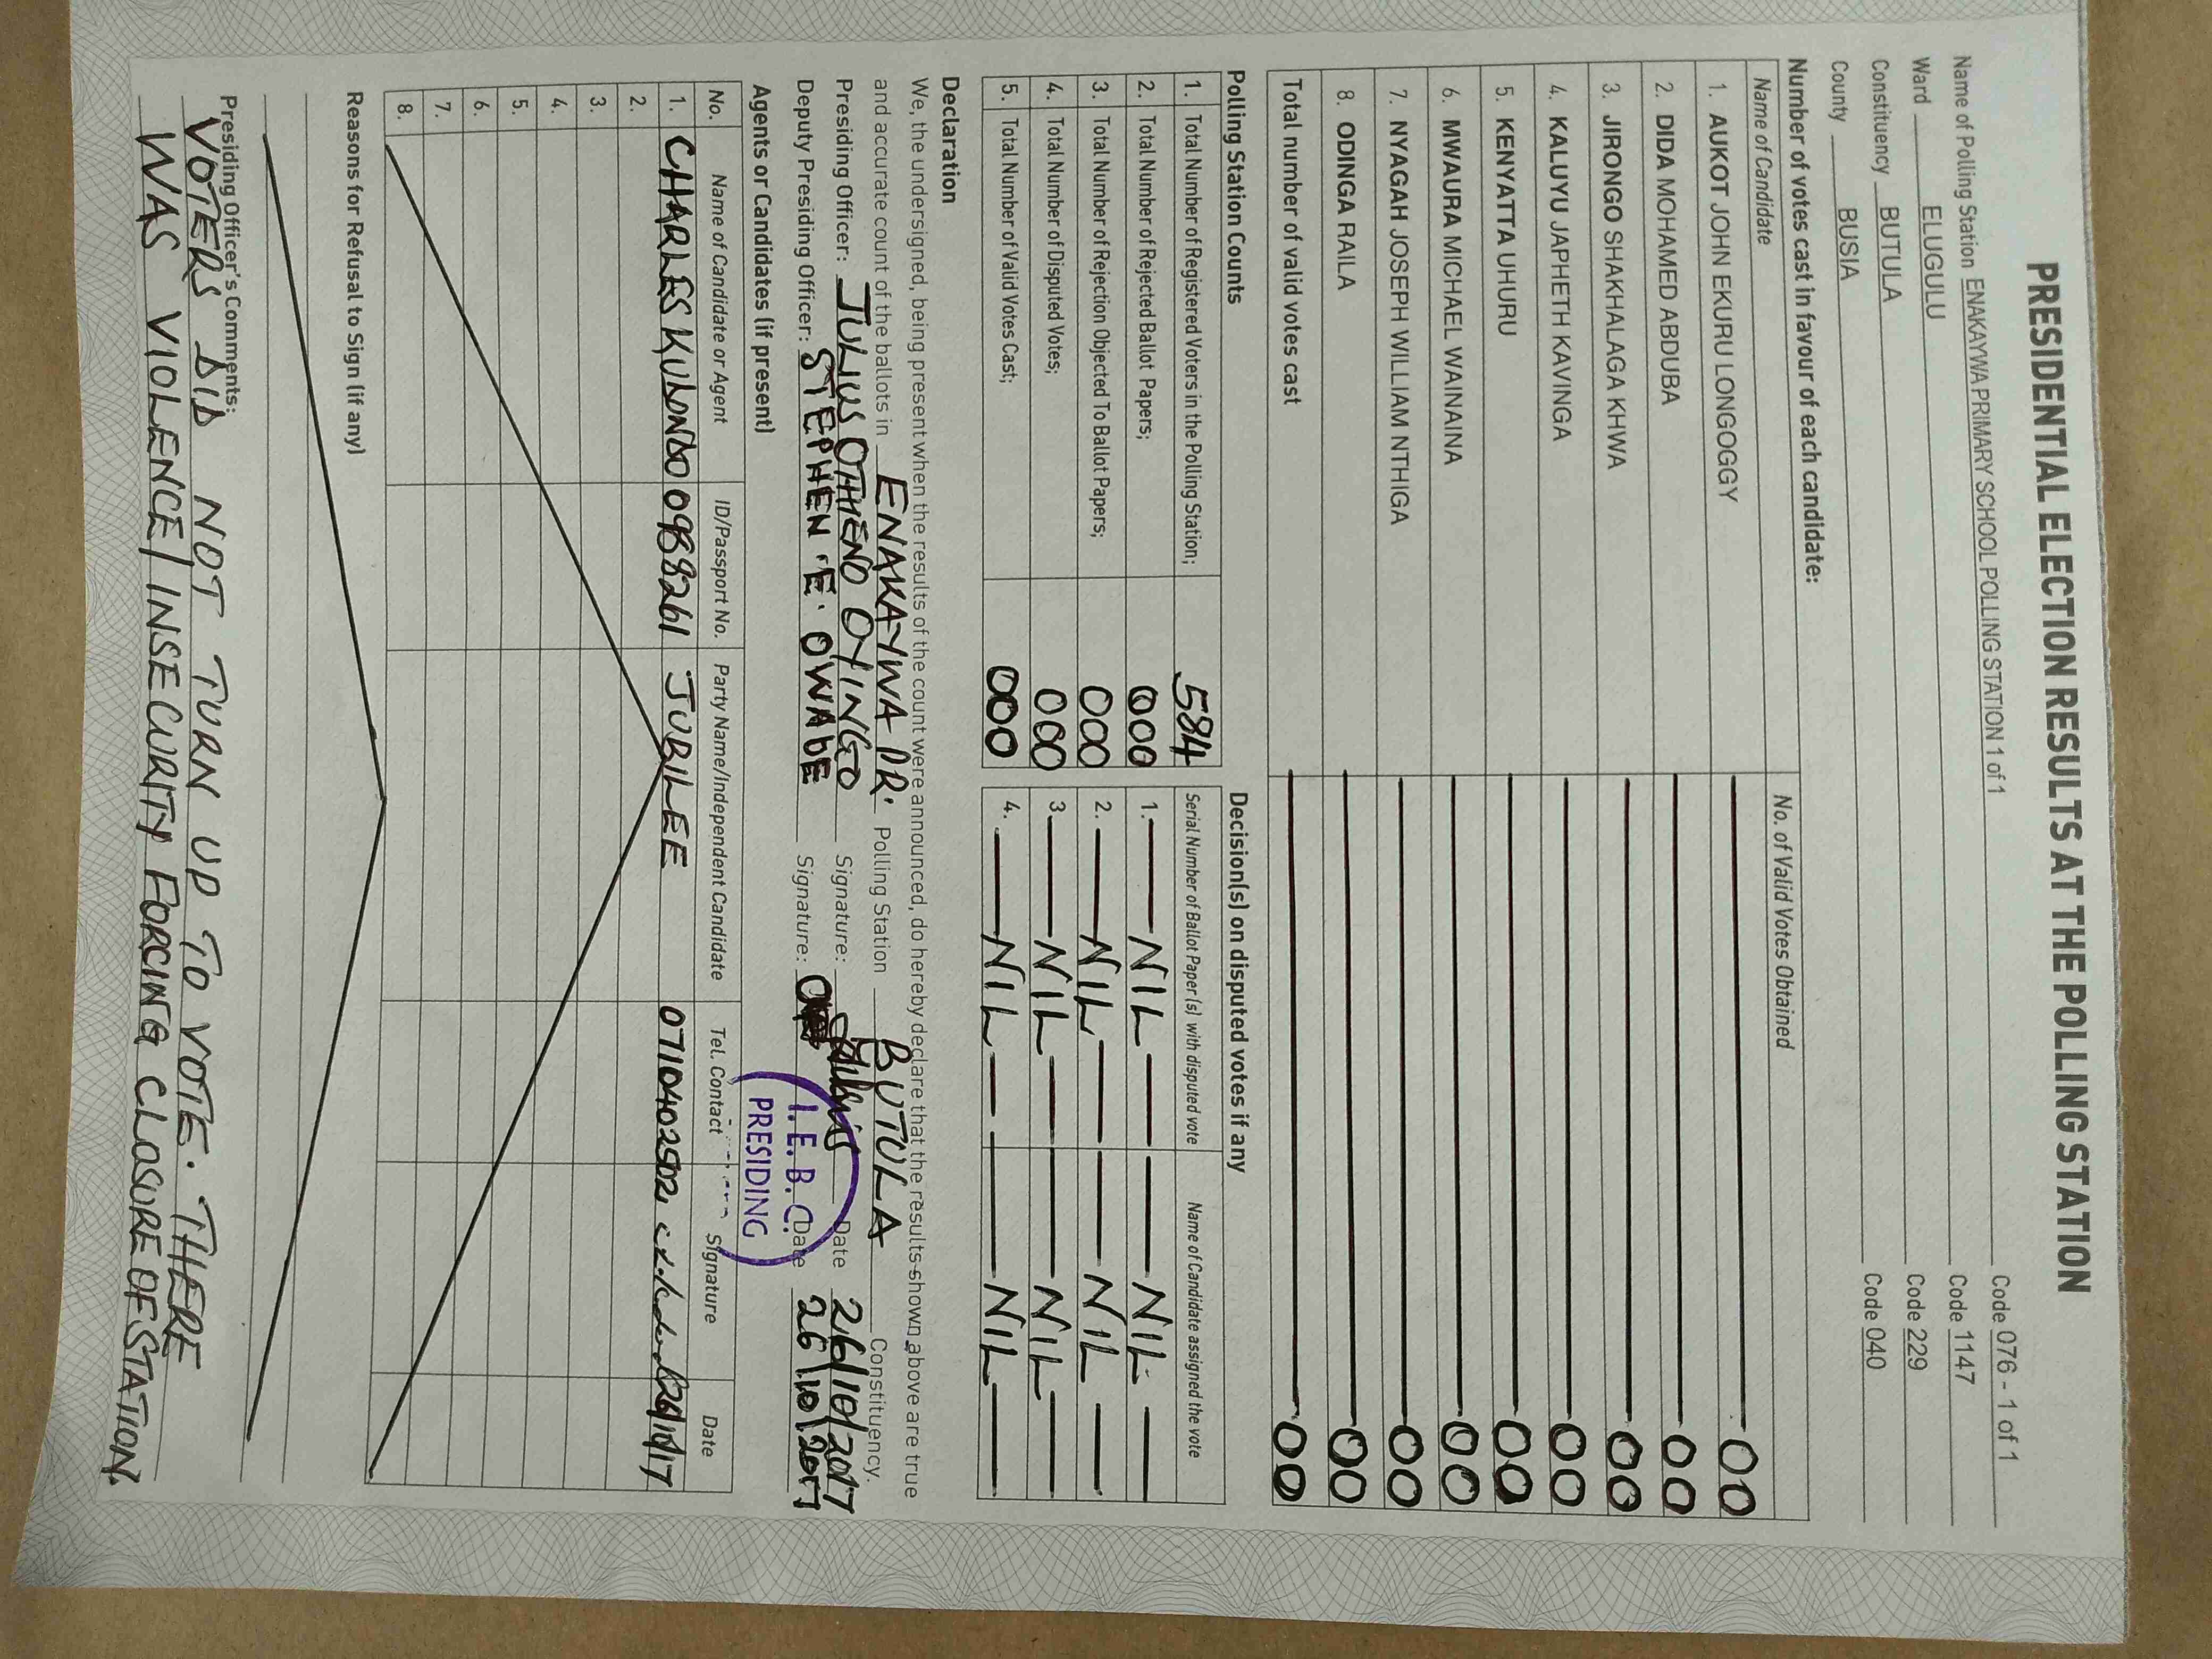 PRESIDENTIAL ELECTION RESULTS AT THE POLLING STATION
Name of Polling Station ENAKAYWA PRIMARY SCHOOL POLLING STATION 1 of 1 Code 076 - 1 of 1
Ward ELUGULU Code 1147
Constituency BUTULA Code 229
County BUSIA Code 040
Number of votes cast in favour of each candidate:
Name of Candidate No. of Valid Votes Obtained
1. AUKOT JOHN EKURU LONGOGGY 00
2. DIDA MOHAMED ABDUBA 00
3. JIRONGO SHAKHALAGA KHWA 00
4. KALUYU JAPHETH KAVINGA 00
5. KENYATTA UHURU 00
6. MWAURA MICHAEL WAINAINA 00
7. NYAGAH JOSEPH WILLIAM NTHIGA 00
8. ODINGA RAILA 00
Total number of valid votes cast 00
Polling Station Counts
1. Total Number of Registered Voters in the Polling Station; 584
2. Total Number of Rejected Ballot Papers; 000
3. Total Number of Rejection Objected To Ballot Papers; 000
4. Total Number of Disputed Votes; 000
5. Total Number of Valid Votes Cast; 000
Decision(s) on disputed votes if any
Serial Number of Ballot Paper (s) with disputed vote Name of Candidate assigned the vote
1. NIL NIL
2. NIL NIL
3. NIL NIL
4. NIL NIL
Declaration
We, the undersigned, being present when the results of the count were announced, do hereby declare that the results shown above are true
and accurate count of the ballots in ENAKAYWA PR. Polling Station BUTULA Constituency.
Presiding Officer: JULIUS OTHENO OYINGO Signature: Date 26/10/2017
Deputy Presiding Officer: STEPHEN 'E'. OWABE Signature: Date 26/10/2017
I. E. B. C.
PRESIDING
Agents or Candidates (if present)
No. Name of Candidate or Agent ID/Passport No. Party Name/Independent Candidate Tel. Contact Signature Date
1. CHARLES KULONDO 0988261 JUBILEE 0710402502
2.
3.
4.
5.
6.
7.
8.
Reasons for Refusal to Sign (if any)
Presiding Officer's Comments:
VOTERS DID NOT TURN UP TO VOTE. THERE
WAS VIOLENCE/INSECURITY FORCING CLOSURE OF STATION.